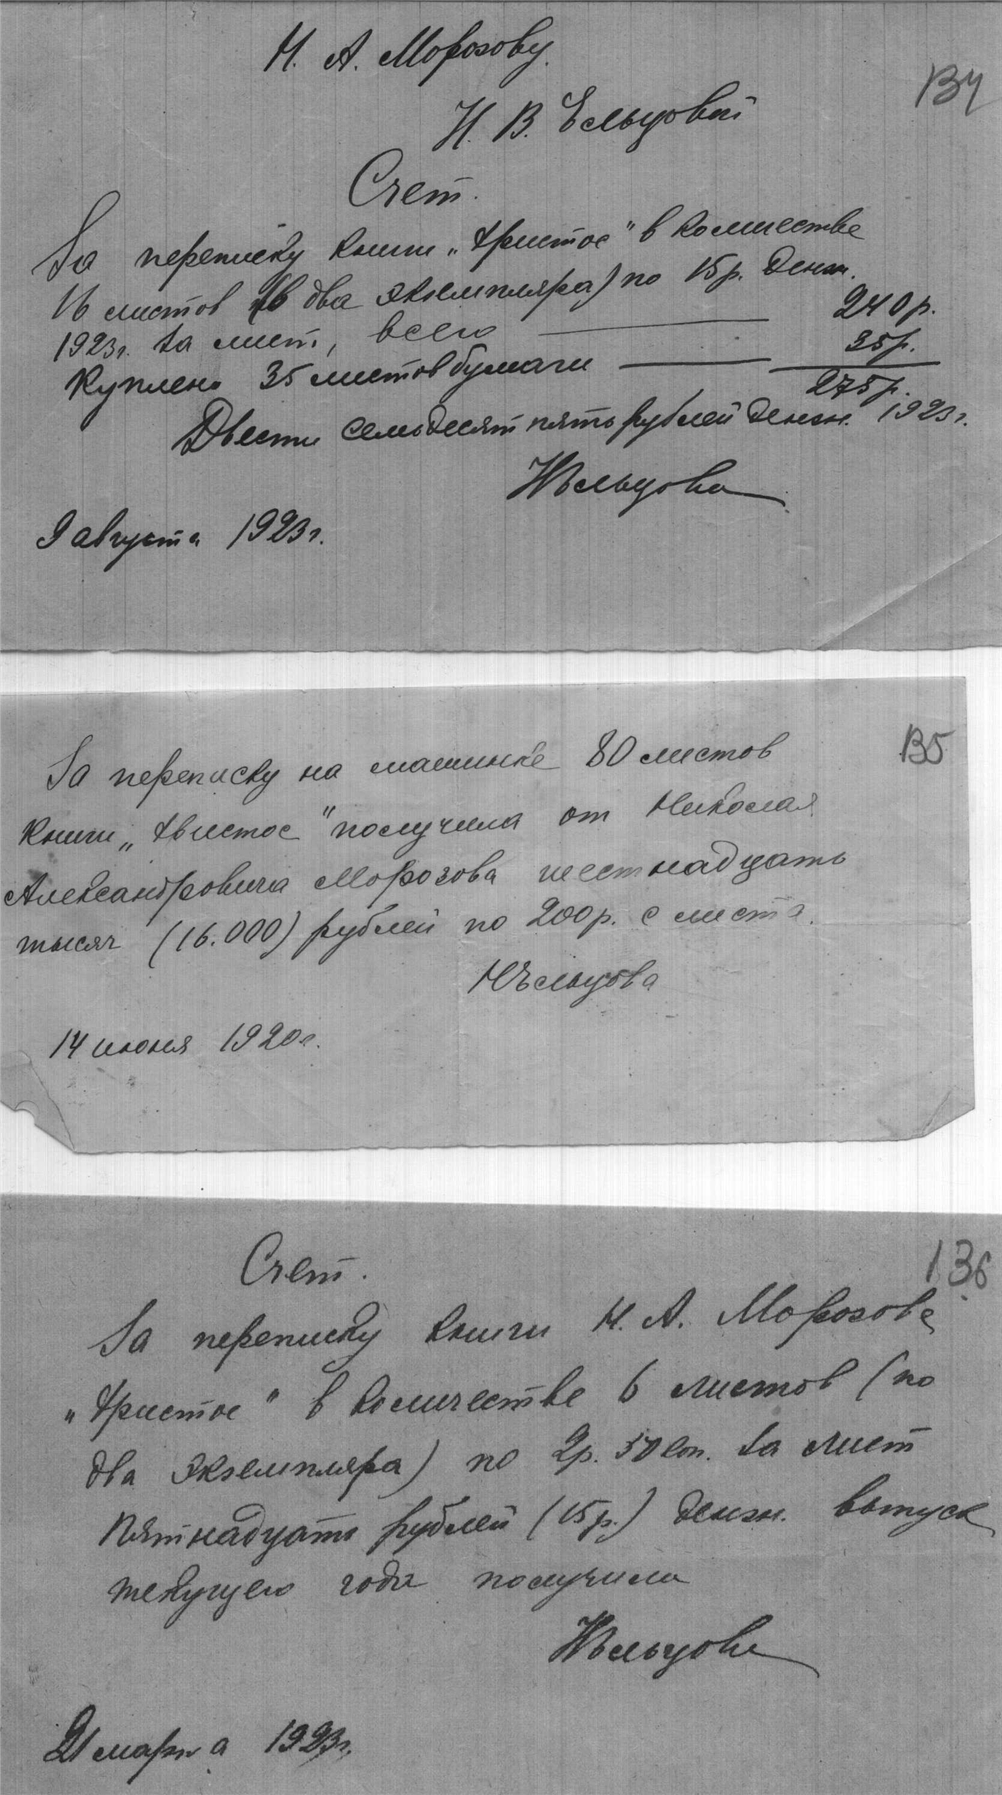 Н. А. Морозову.
134
Н. В. Ельцовой
Счет.
За переписку книги „Христос" в количестве
16 листов (в два экземпляра) по 15 р. дензн.
1923 г. за лист, всего — 240 р.
Куплено 35 листов бумаги — 35 р.
275 р.
Двести семьдесят пять рублей дензн. 1923 г.
НЕльцова
9 августа 1923 г.
135
За переписку на машинке 80 листов
книги „Христос" получила от Николая
Александровича Морозова шестнадцать
тысяч (16.000) рублей по 200 р. с листа.
НЕльцова
14 июня 1920 г.
136
Счет.
За переписку книги Н. А. Морозова
„Христос" в количестве 6 листов (по
два экземпляра) по 2 р. 50 коп. за лист
пятнадцать рублей (15 р.) дензн. выпуск
текущего года получила
НЕльцова
21 марта 1923 г.